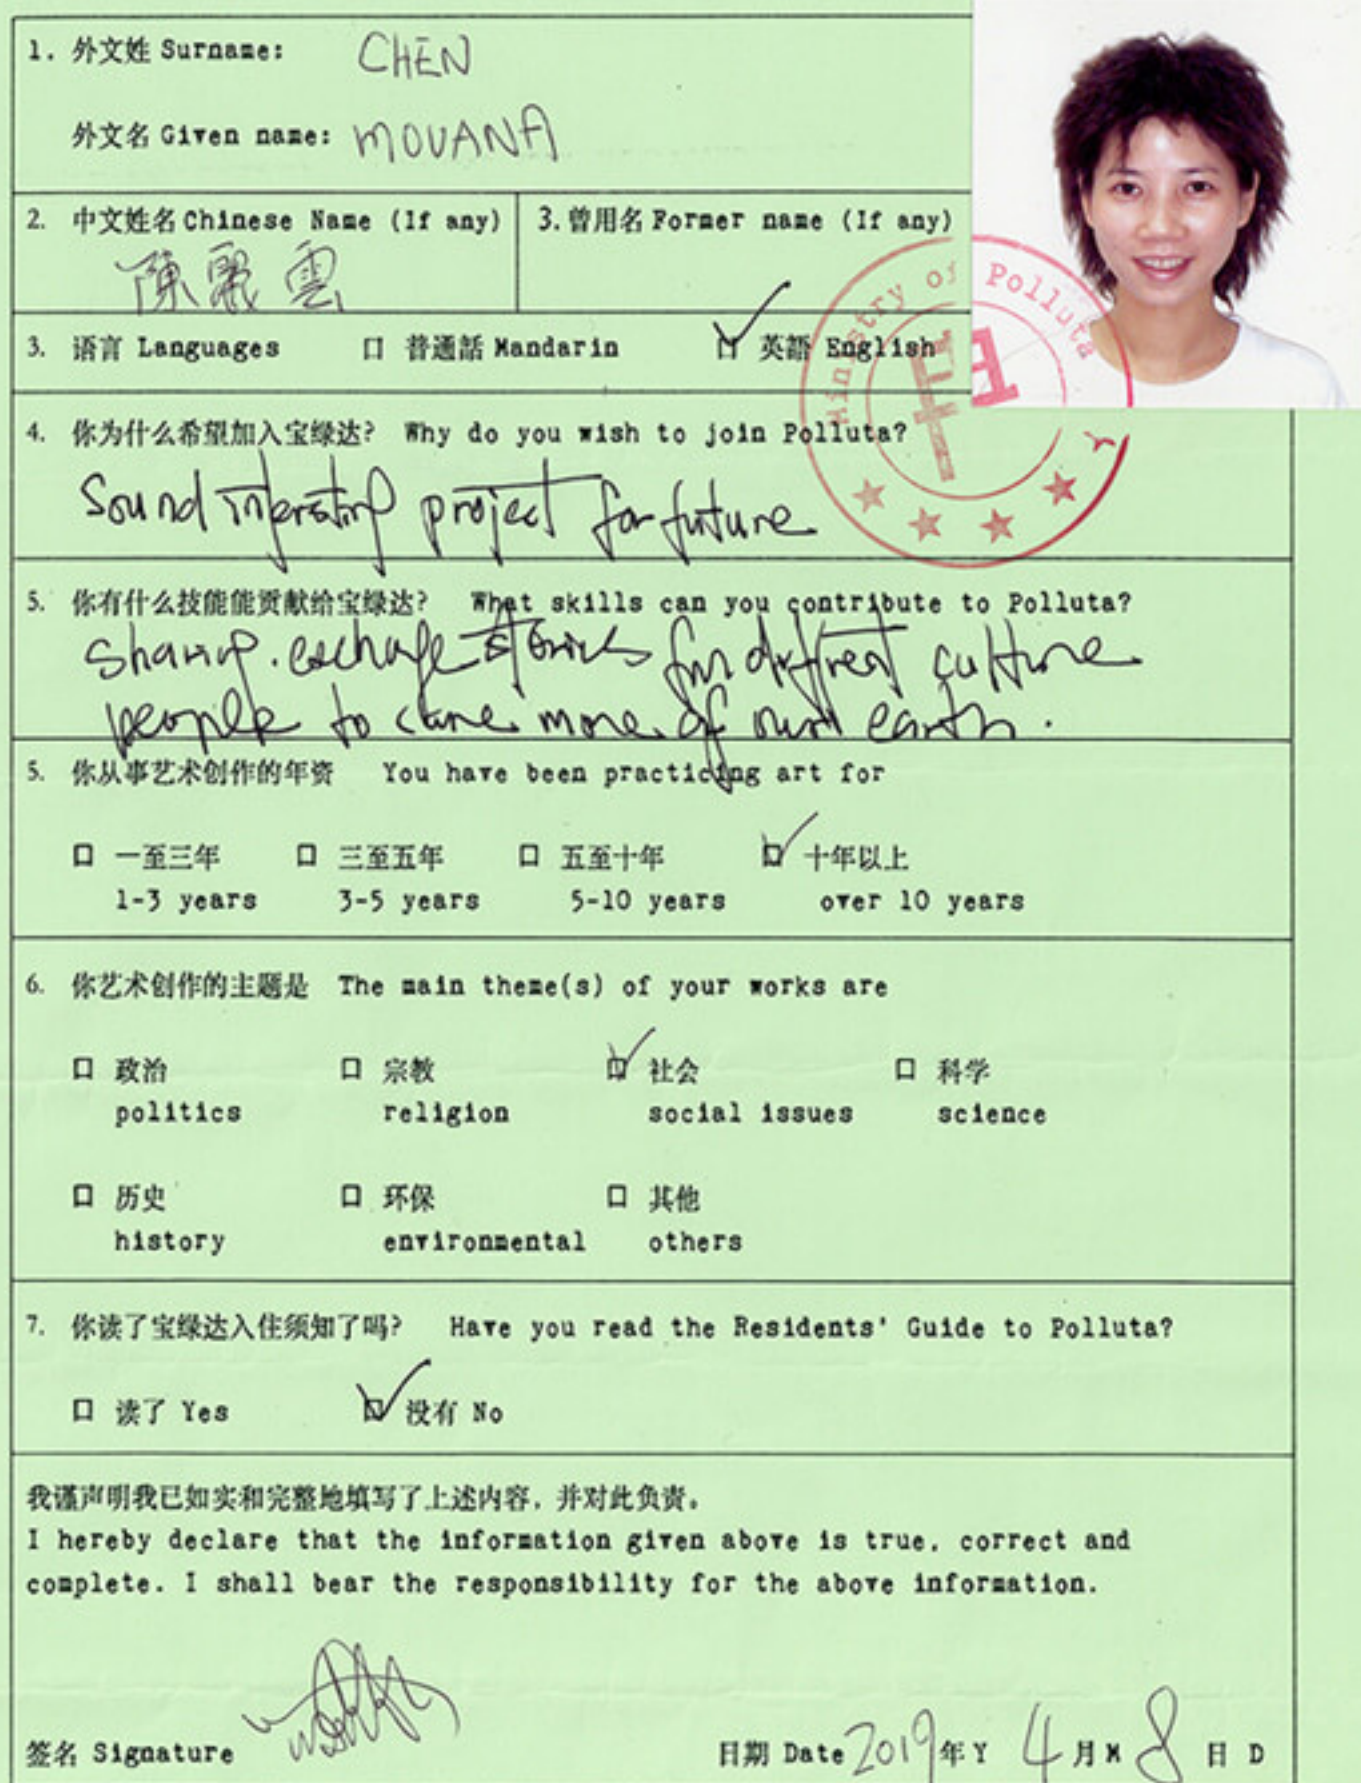 1. 外文姓 Surname: CHEN
外文名 Given name: MOVANA
2. 中文姓名 Chinese Name (If any)
3. 曾用名 Former name (If any)
陳麗雲
3. 语言 Languages 口 普通話 Mandarin 口 英語 English
Ministry of Polluta
4. 你为什么希望加入宝绿达? Why do you wish to join Polluta?
Sound intersting project for future
5. 你有什么技能能贡献给宝绿达? What skills can you contribute to Polluta?
Sharing. exchage stories for diffrent culture
people to care more of our earth.
5. 你从事艺术创作的年资 You have been practicing art for
口 一至三年 口 三至五年 口 五至十年 口 十年以上
1-3 years 3-5 years 5-10 years over 10 years
6. 你艺术创作的主题是 The main theme(s) of your works are
口 政治 口 宗教 口 社会 口 科学
politics religion social issues science
口 历史 口 环保 口 其他
history environmental others
7. 你读了宝绿达入住须知了吗? Have you read the Residents' Guide to Polluta?
口 读了 Yes 口 没有 No
我谨声明我已如实和完整地填写了上述内容，并对此负责。
I hereby declare that the information given above is true, correct and
complete. I shall bear the responsibility for the above information.
签名 Signature 日期 Date 2019 年 Y 4 月 M 8 日 D